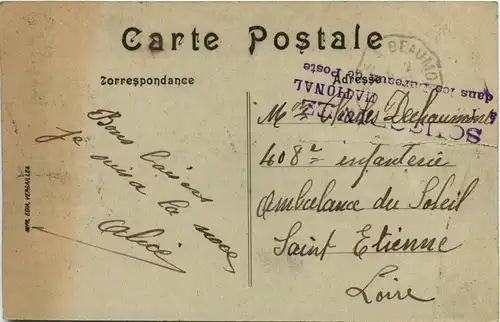 Carte Postale
Correspondance
Adresse
BEAUMO
dans les Bureaux de Poste
NATIONAL
Bons baisers
je suis a la noce
Alice
408e infanterie
Ambulance du Soleil
Saint Etienne
Loire
IMP. EDIA, VERSAILLES